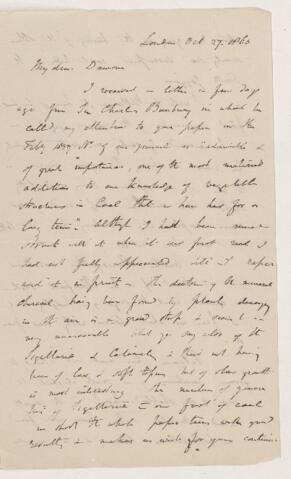 London Oct 27. 1860
My dear Dawson
I received a letter a few days
ago from Sir Charles Bunbury in which he
called my attention to your paper in the
Feby 18 No of our journal as "admirable &
of great importance, one of the most material
additions to our knowledge of vegetable
structures in Coal that we have had for a
long time". Altho I had been much
struck with it when it was first read I
had not fully appreciated till I
read it in print. The doctrine of the mineral
charcoal having been formed by plants decaying
in the air is a grand step & seems to me
very
Sigillaria & Calamites & their not being
trees of lax & soft but of slow growth
is most interesting the number of
of Sigillaria = one foot of coal
in short the whole paper teems with good
results & makes me wish for your